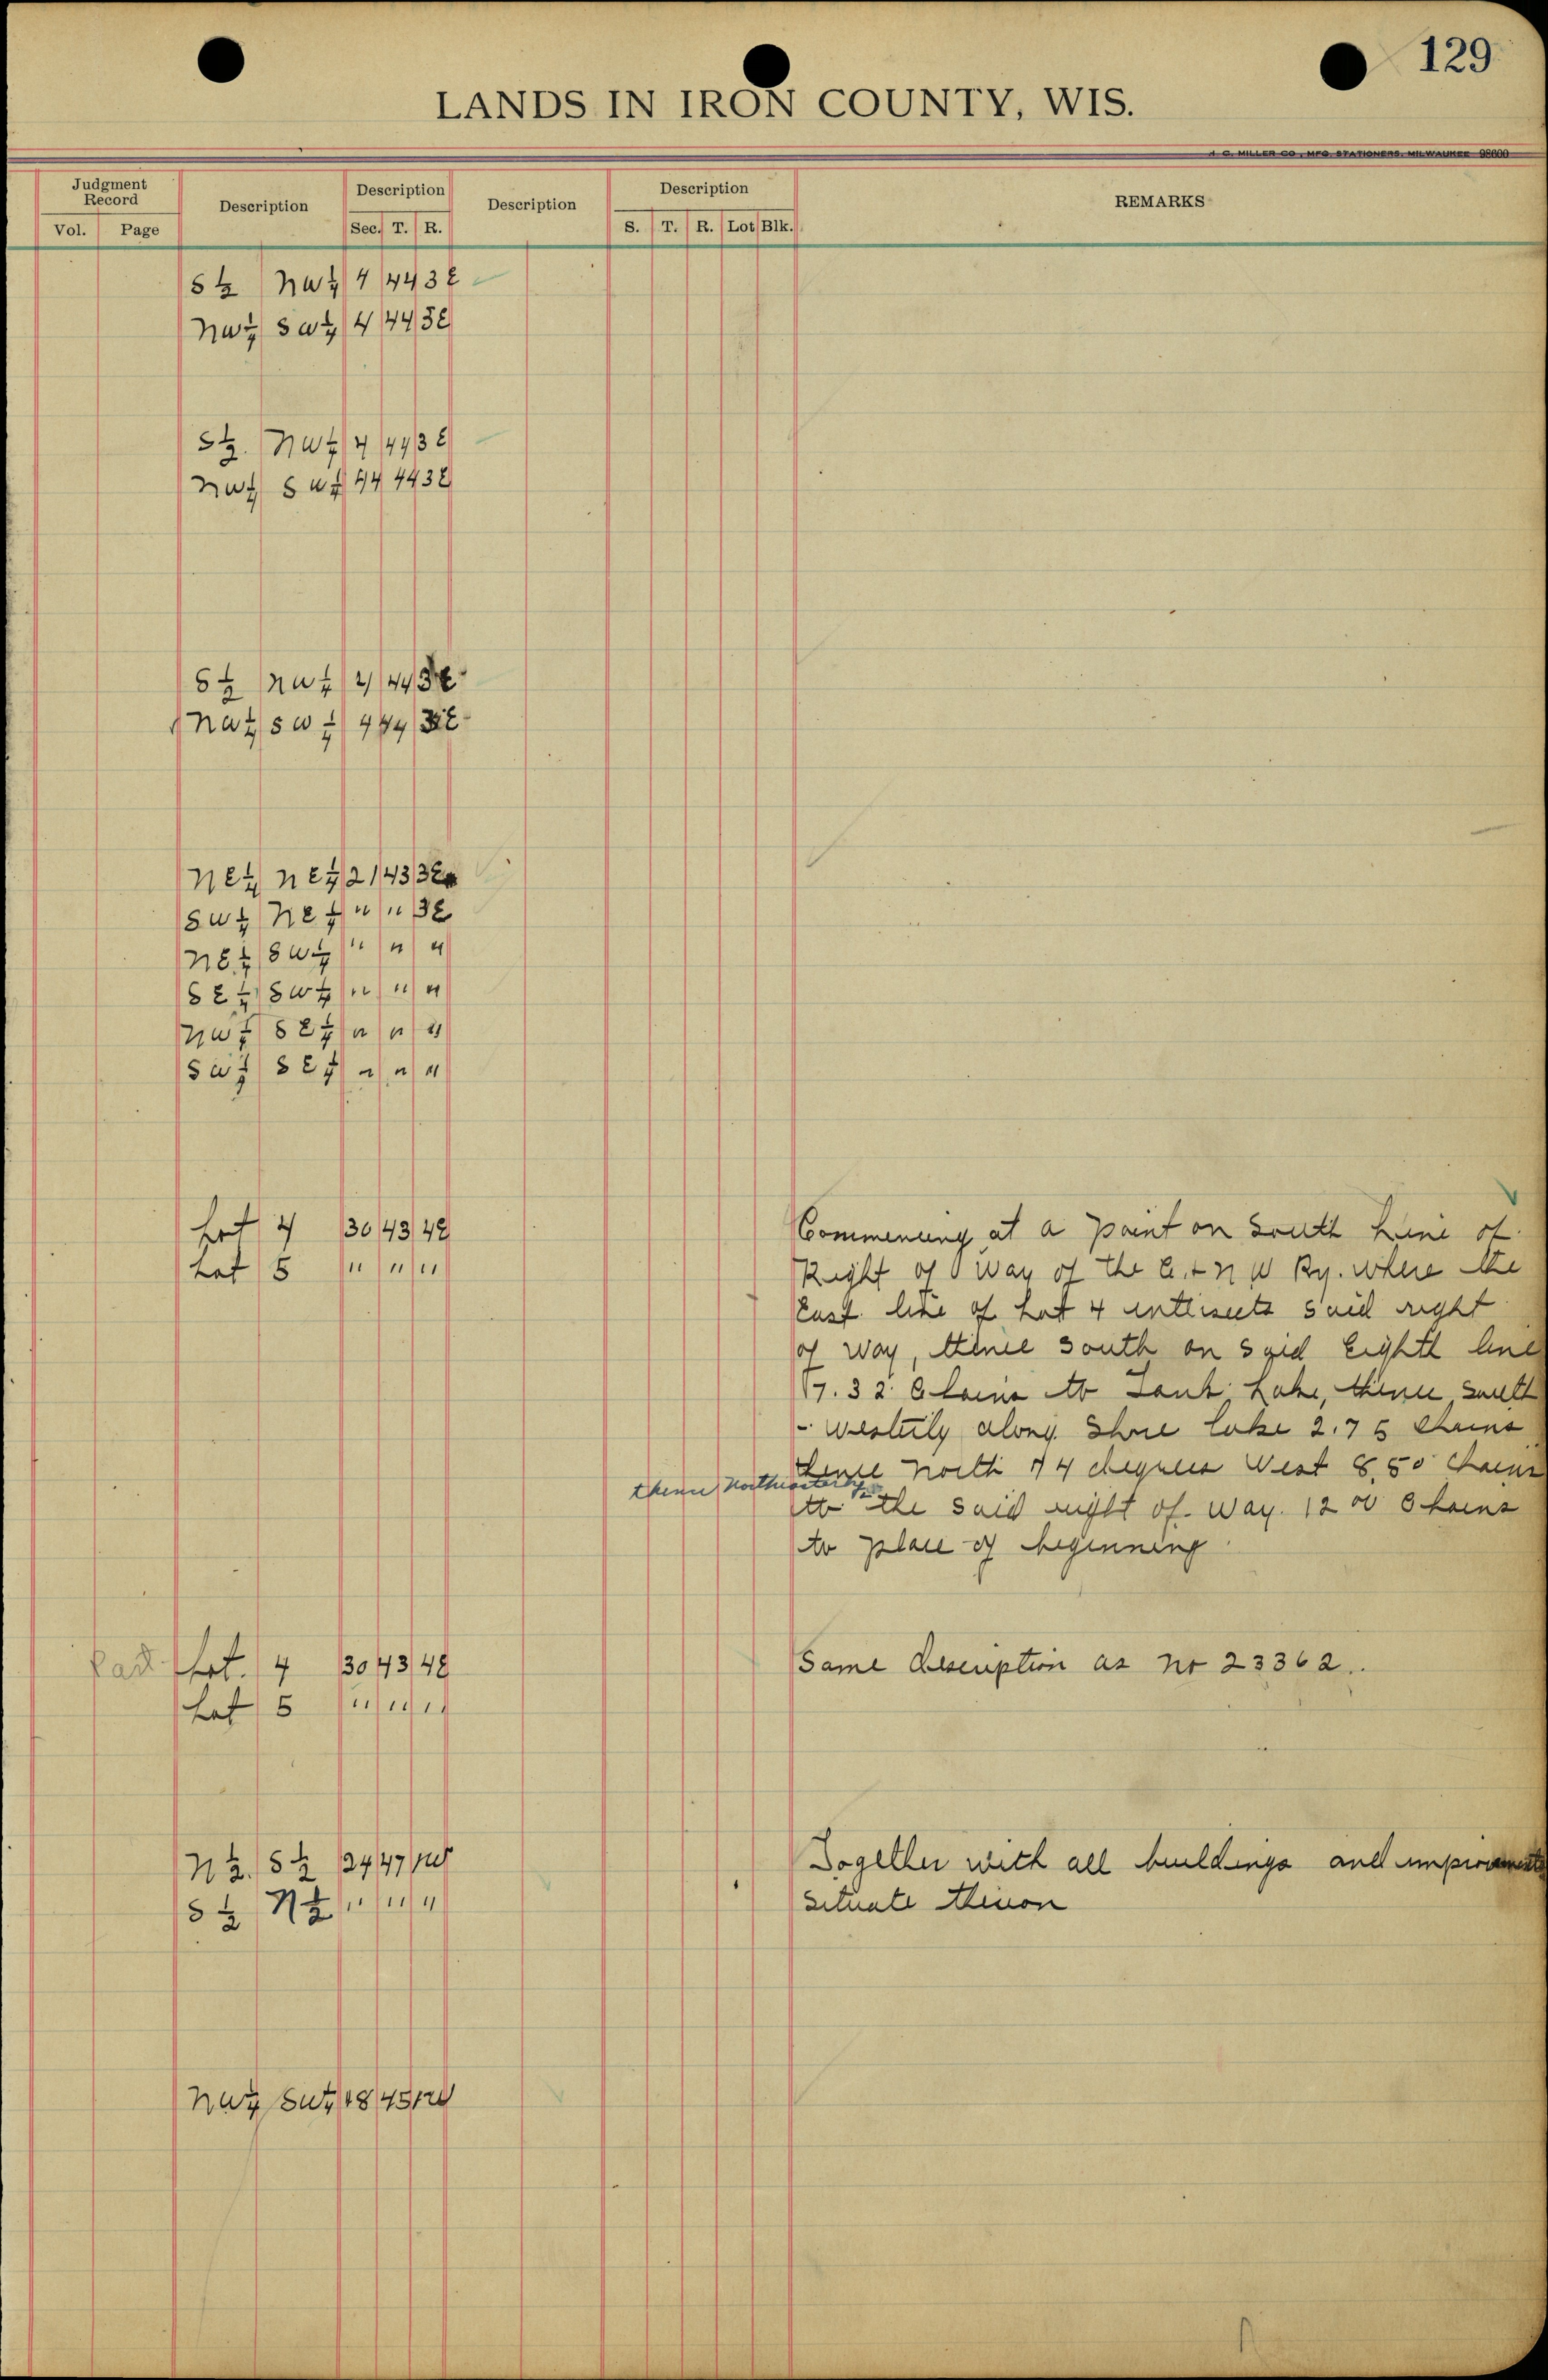 129
LANDS IN IRON COUNTY, WIS.
H. C. MILLER CO., MFG. STATIONERS, MILWAUKEE 98600
Judgment Record
Vol. Page
Description
Description
Sec. T. R.
Description
Description
S. T. R. Lot Blk.
REMARKS
S½ NW¼ 4 44 3E
NW¼ SW¼ 4 44 3E
S½ NW¼ 4 44 3E
NW¼ SW¼ 4 44 3E
S½ NW¼ 4 44 3E
NW¼ SW¼ 4 44 3E
NE¼ NE¼ 21 43 3E
SW¼ NE¼ " " 3E
NE¼ SW¼ " " "
SE¼ SW¼ " " "
NW¼ SE¼ " " "
SW¼ SE¼ " " "
Lot 4 30 43 4E
Lot 5 " " "
Commencing at a point on South Line of
Right of Way of the C. + N W Ry. where the
East line of Lot 4 intersects said right
of way, thence South on said Eighth line
17.32 Chains to Lake, thence South
- westerly along Shore lake 2.75 Chains
thence North 74 degrees West 8.50 Chains
thence Northeasterly
to the said right of way. 12 00 Chains
to place of beginning
Part Lot. 4 30 43 4E
Lot 5 " " "
Same description as No 23362.
N½. S½ 24 47 1W
S½ N½ " " "
Together with all buildings and improvements
situate thereon
NW¼ SW¼ 18 45 1W